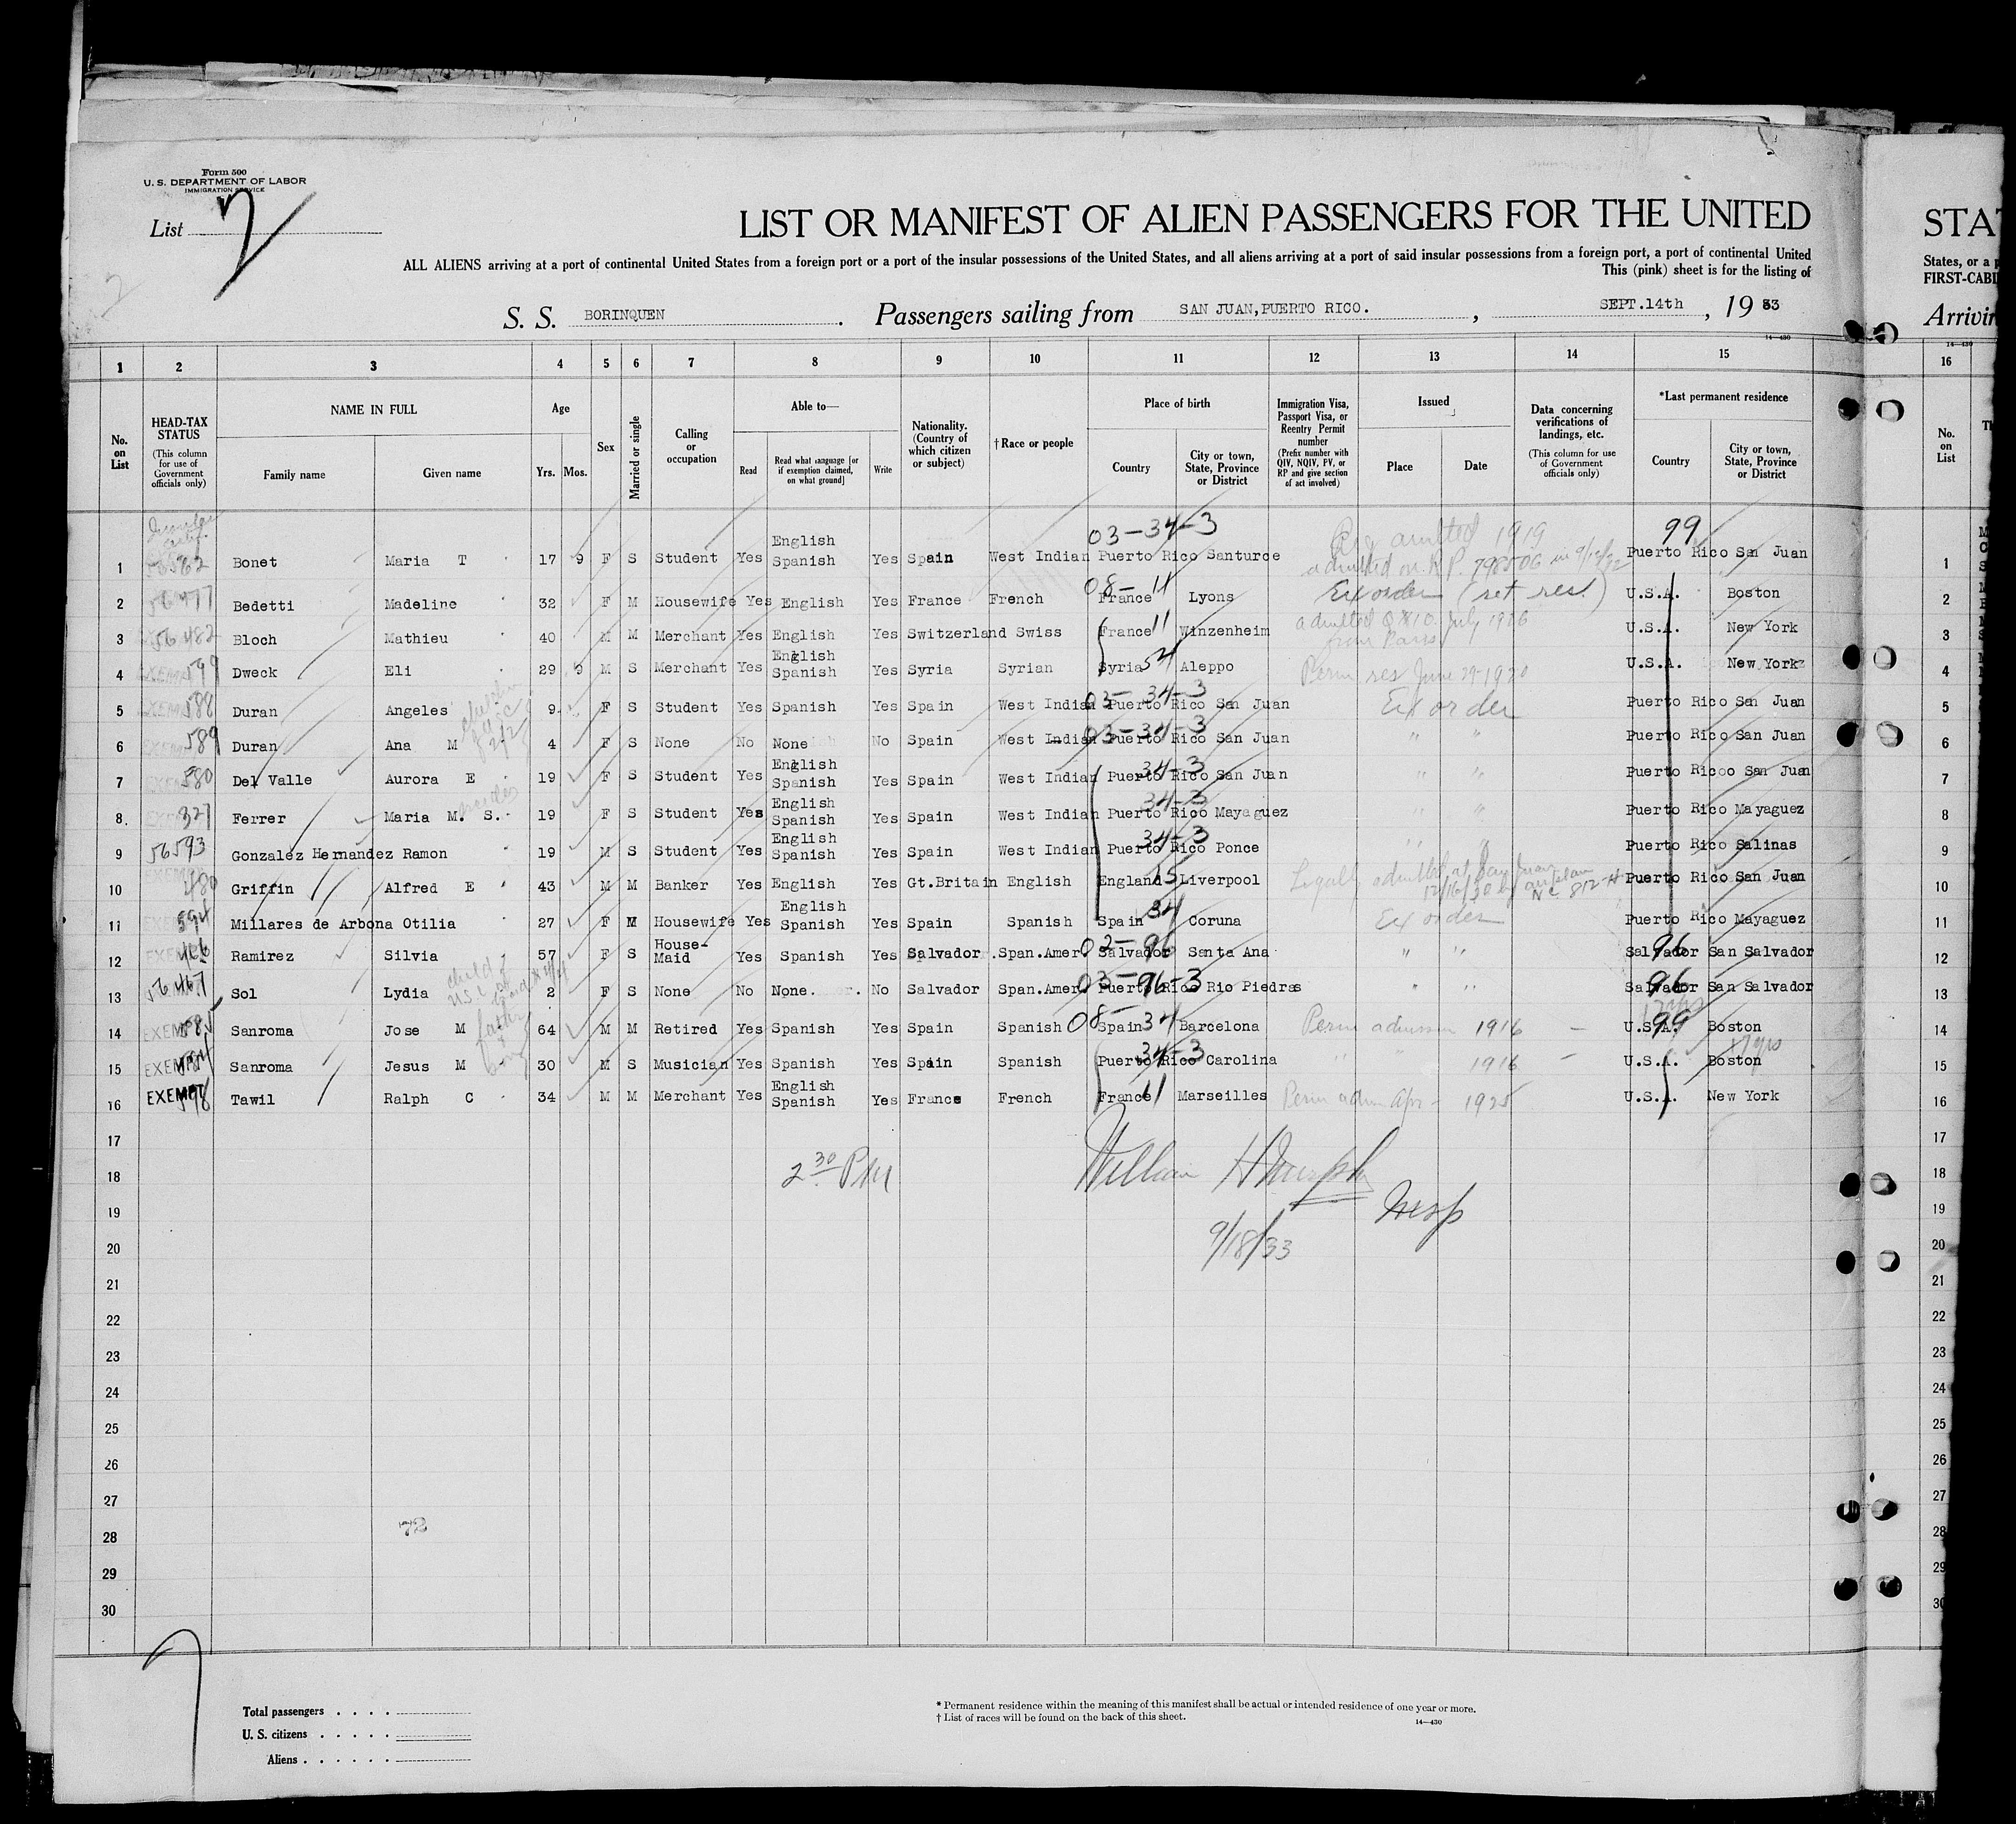 Form 500
U. S. DEPARTMENT OF LABOR
IMMIGRATION SERVICE
List 2
LIST OR MANIFEST OF ALIEN PASSENGERS FOR THE UNITED
STA
ALL ALIENS arriving at a port of continental United States from a foreign port or a port of the insular possessions of the United States, and all aliens arriving at a port of said insular possessions from a foreign port, a port of continental United
States, or a p
This (pink) sheet is for the listing of
FIRST-CABI
2
S. S. BORINQUEN. Passengers sailing from SAN JUAN, PUERTO RICO. , SEPT.14th , 1933
Arrivin
14—430
14—430
1 2 3 4 5 6 7 8 9 10 11 12 13 14 15 16
No. on List
HEAD-TAX STATUS (This column for use of Government officials only)
NAME IN FULL
Family name
Given name
Age
Yrs. Mos.
Sex
Married or single
Calling or occupation
Able to—
Read
Read what language [or if exemption claimed, on what ground]
Write
Nationality. (Country of which citizen or subject)
†Race or people
Place of birth
Country
City or town, State, Province or District
Immigration Visa, Passport Visa, or Reentry Permit number (Prefix number with QIV, NQIV, PV, or RP and give section of act involved)
Issued
Place
Date
Data concerning verifications of landings, etc. (This column for use of Government officials only)
*Last permanent residence
Country
City or town, State, Province or District
No. on List
03-34-3 admitted 1919 99
1 562 Bonet Maria T 17 9 F S Student Yes English Spanish Yes Spain West Indian Puerto Rico Santurce admitted on R.P. 798506 in 9/12/32 Puerto Rico San Juan 1
08-11
2 56477 Bedetti Madeline 32 F M Housewife Yes English Yes France French France Lyons Ex order (ret res.) U.S.A. Boston 2
3 56482 Bloch Mathieu 40 M M Merchant Yes English Yes Switzerland Swiss France 11 Winzenheim admitted July 1926 from Paris U.S.A. New York 3
4 EXEMPT 599 Dweck Eli 29 9 M S Merchant Yes English Spanish Yes Syria Syrian Syria 54 Aleppo Perm res June 29-1920 U.S.A. New York 4
03-34-3
5 EXEMPT 588 Duran Angeles 9 F S Student Yes Spanish Yes Spain West Indian Puerto Rico San Juan Ex order Puerto Rico San Juan 5
03-34-3
6 EXEMPT 589 Duran Ana M 4 F S None No None No Spain West Indian Puerto Rico San Juan " " Puerto Rico San Juan 6
34-3
7 EXEMPT 580 Del Valle Aurora E 19 F S Student Yes English Spanish Yes Spain West Indian Puerto Rico San Juan " " Puerto Ricoo San Juan 7
34-3
8. EXEMPT 327 Ferrer Maria M. S. 19 F S Student Yes English Spanish Yes Spain West Indian Puerto Rico Mayaguez " " Puerto Rico Mayaguez 8
34-3
9 56593 Gonzalez Hernandez Ramon 19 M S Student Yes English Spanish Yes Spain West Indian Puerto Rico Ponce " " Puerto Rico Salinas 9
10 480 Griffin Alfred E 43 M M Banker Yes English Yes Gt.Britain English England 15 Liverpool Legally admitted at San Juan 12/16/30 by airplane NC 812-H Puerto Rico San Juan 10
11 EXEMPT 594 Millares de Arbona Otilia 27 F M Housewife Yes English Spanish Yes Spain Spanish Spain 34 Coruna Ex order Puerto Rico Mayaguez 11
12 EXEMPT 466 Ramirez Silvia 57 F S House-Maid Yes Spanish Yes Salvador Span.Amer. 02-96 Salvador Santa Ana " " 96 Salvador San Salvador 12
13 56467 Sol Lydia 2 F S None No None. No Salvador Span.Amer. 03-96-3 Puerto Rico Rio Piedras " " 96 Salvador San Salvador 13
14 EXEMPT 585 Sanroma Jose M 64 M M Retired Yes Spanish Yes Spain Spanish 08-34 Spain Barcelona Perm admission 1916 — U.S.A. 99 Boston 14
15 EXEMPT 584 Sanroma Jesus M 30 M S Musician Yes Spanish Yes Spain Spanish 34-3 Puerto Rico Carolina " " 1916 — U.S.A. Boston 15
16 EXEMPT 598 Tawil Ralph C 34 M M Merchant Yes English Spanish Yes France French France 11 Marseilles Perm adm Apr - 1925 U.S.A. New York 16
17 17
18 2 30 PM William H Murphy 18
19 Insp 19
20 9/18/33 20
21 21
22 22
23 23
24 24
25 25
26 26
27 27
28 72 28
29 29
30 30
Total passengers . . . .
U. S. citizens . . . . .
Aliens . . . . . .
* Permanent residence within the meaning of this manifest shall be actual or intended residence of one year or more.
† List of races will be found on the back of this sheet.
14—430